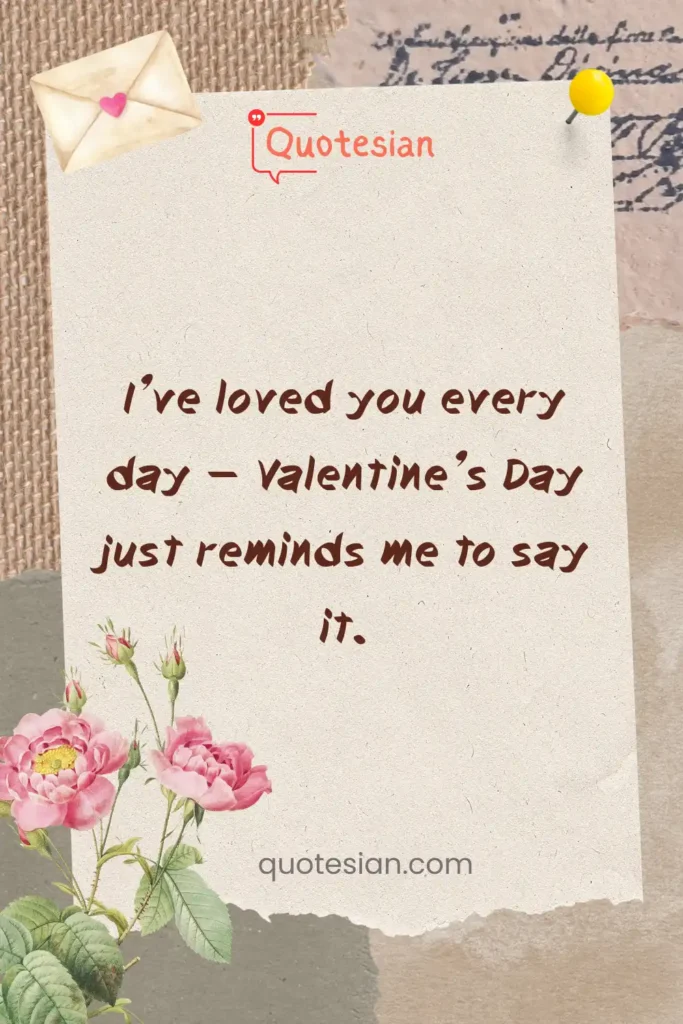 Quotesian
I’ve loved you every
day – Valentine’s Day
just reminds me to say
it.
quotesian.com